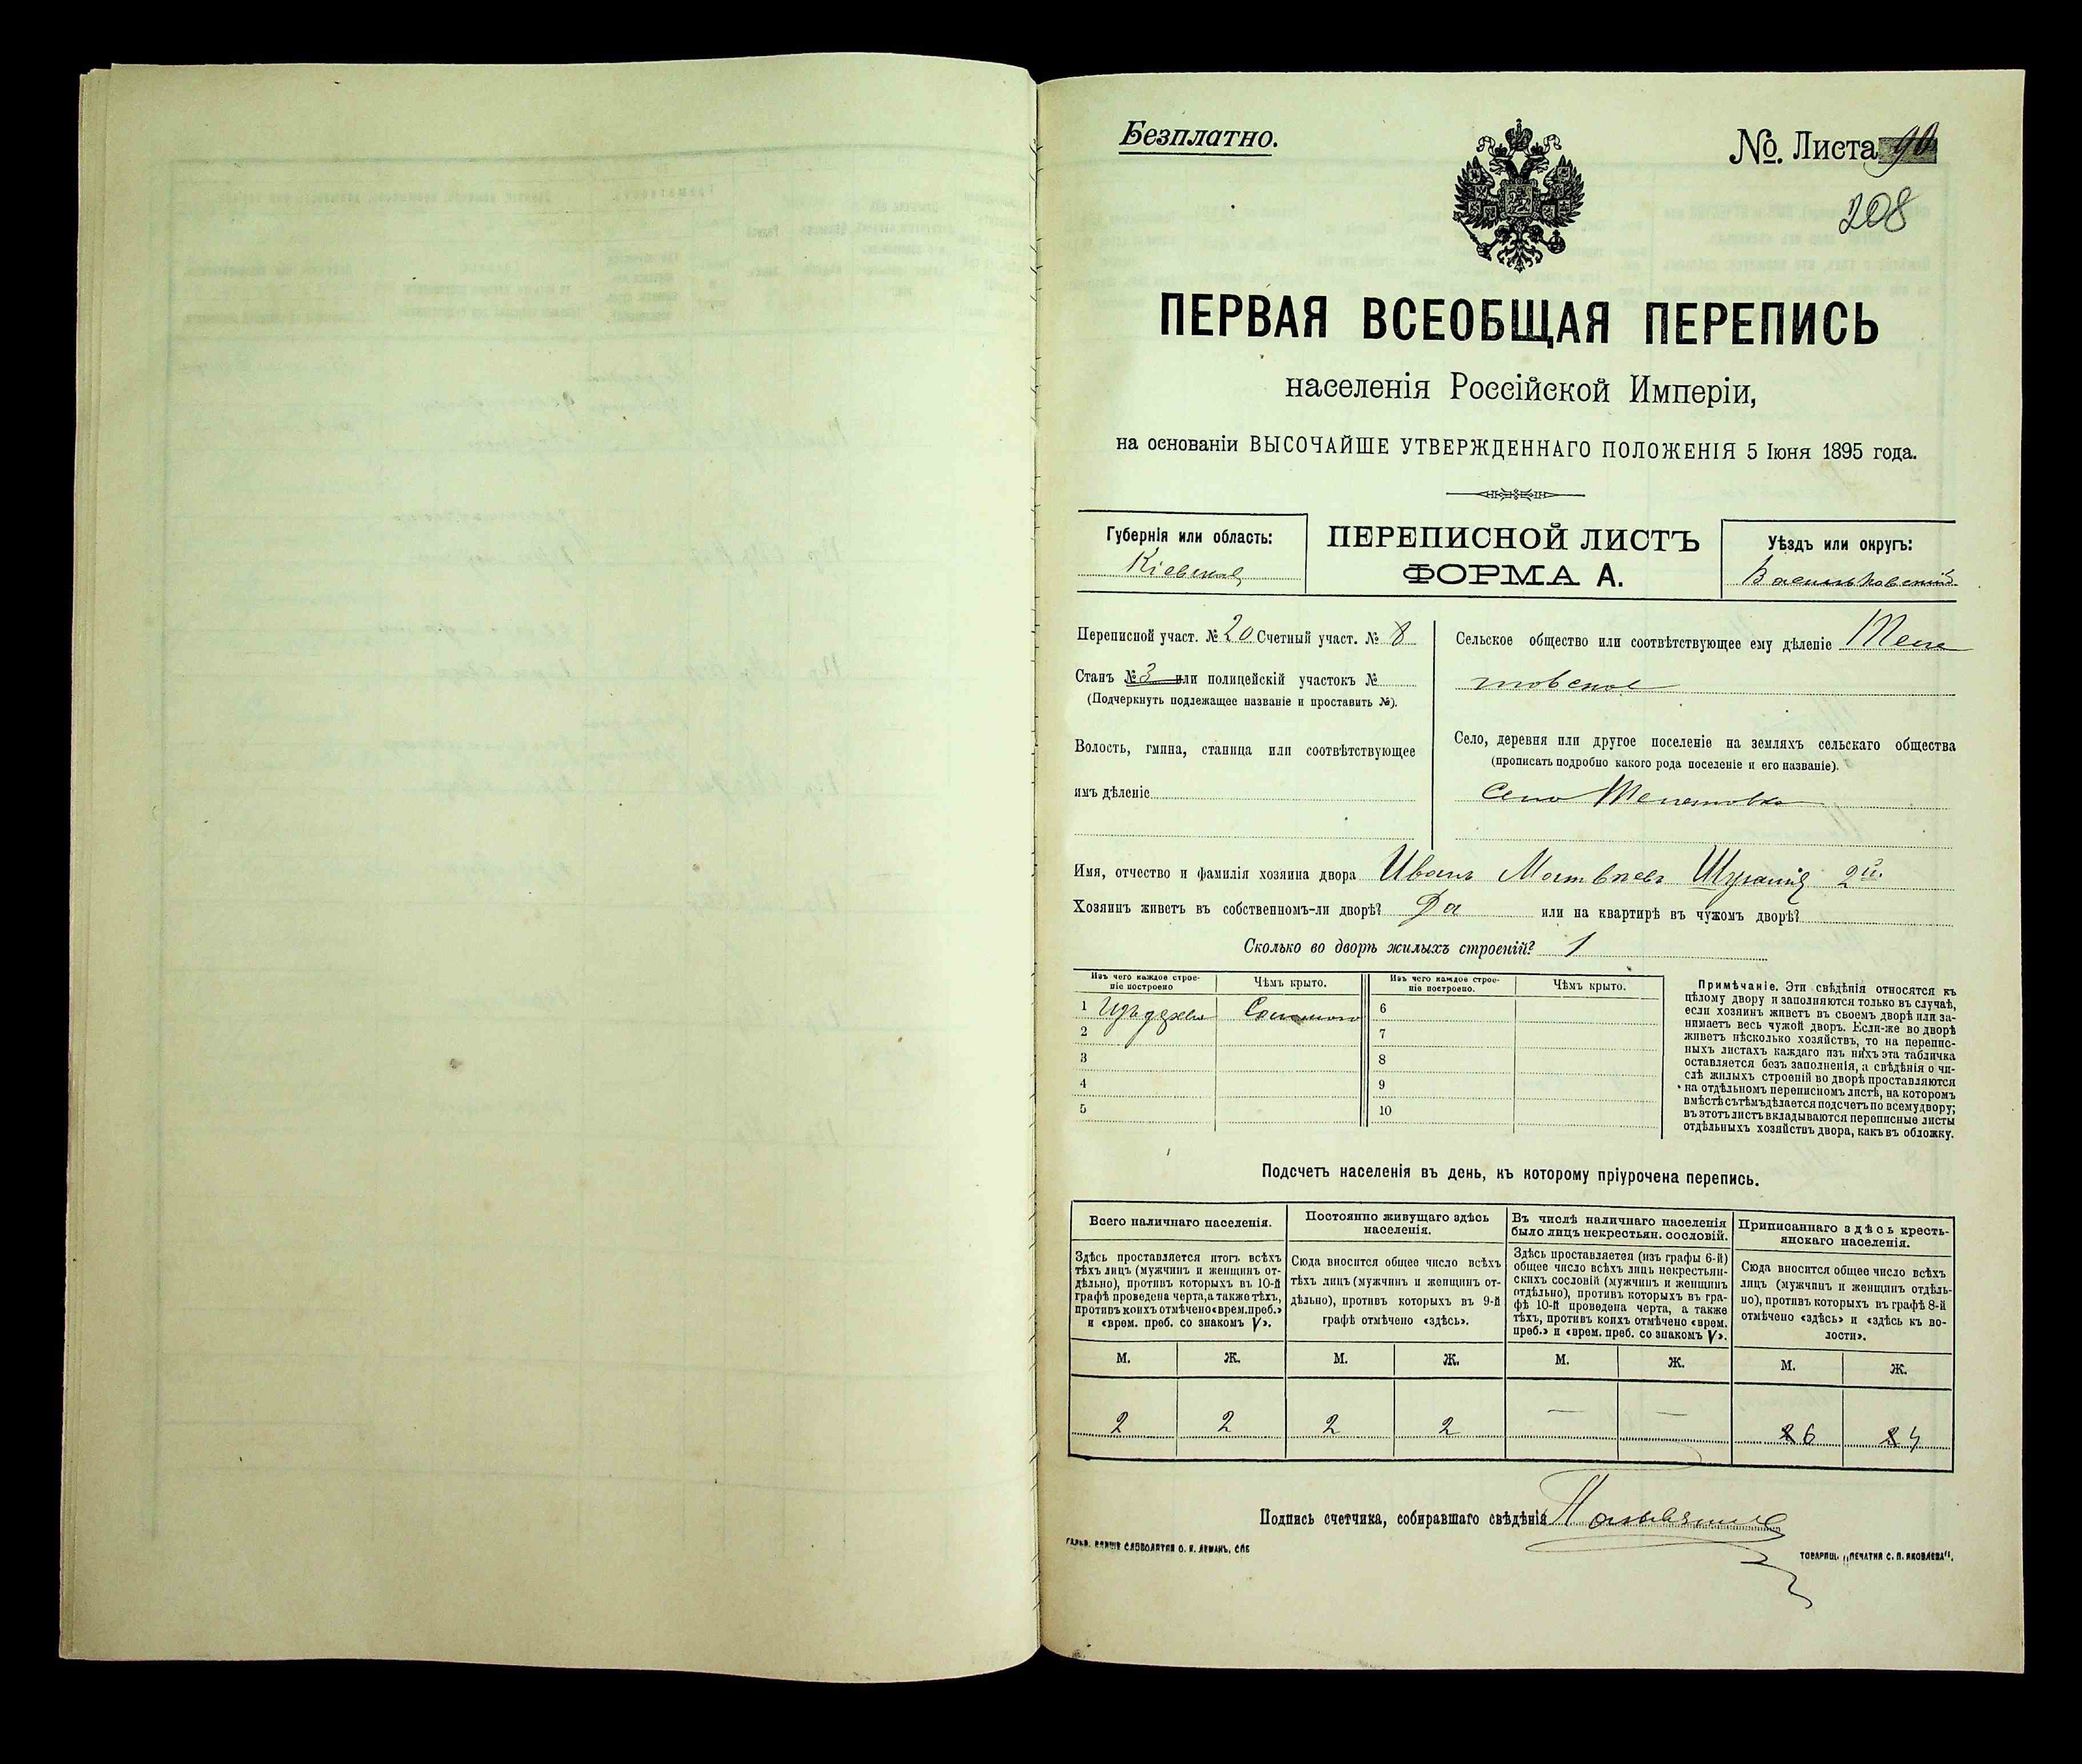 Безплатно.
№. Листа 90
208
ПЕРВАЯ ВСЕОБЩАЯ ПЕРЕПИСЬ
населенія Россійской Имперіи,
на основаніи ВЫСОЧАЙШЕ УТВЕРЖДЕННАГО ПОЛОЖЕНІЯ 5 Іюня 1895 года.
Губернія или область:
Кіевская
ПЕРЕПИСНОЙ ЛИСТЪ
ФОРМА А.
Уѣздъ или округъ:
Васильковскій
Переписной участ. № 20 Счетный участ. № 8
Станъ № 3 или полицейскій участокъ №
(Подчеркнуть подлежащее названіе и проставить №).
Волость, гмина, станица или соотвѣтствующее
имъ дѣленіе
Сельское общество или соотвѣтствующее ему дѣленіе
Село, деревня или другое поселеніе на земляхъ сельскаго общества
(прописать подробно какого рода поселеніе и его названіе).
Село
Имя, отчество и фамилія хозяина двора Иванъ Матвѣевъ 2й.
Хозяинъ живетъ въ собственномъ-ли дворѣ? Да или на квартирѣ въ чужомъ дворѣ?
Сколько во дворѣ жилыхъ строеній? 1
Изъ чего каждое строе-
ніе построено
Чѣмъ крыто.
Изъ чего каждое строе-
ніе построено.
Чѣмъ крыто.
1 Изъ дерева Соломою 6
2 7
3 8
4 9
5 10
Примѣчаніе. Эти свѣдѣнія относятся къ
цѣлому двору и заполняются только въ случаѣ,
если хозяинъ живетъ въ своемъ дворѣ или за-
нимаетъ весь чужой дворъ. Если-же во дворѣ
живетъ нѣсколько хозяйствъ, то на перепис-
ныхъ листахъ каждаго изъ нихъ эта табличка
оставляется безъ заполненія, а свѣдѣнія о чи-
слѣ жилыхъ строеній во дворѣ проставляются
на отдѣльномъ переписномъ листѣ, на которомъ
вмѣстѣ съ тѣмъ дѣлается подсчетъ по всему двору;
въ этотъ листъ вкладываются переписные листы
отдѣльныхъ хозяйствъ двора, какъ въ обложку.
Подсчетъ населенія въ день, къ которому пріурочена перепись.
Всего наличнаго населенія.
Здѣсь проставляется итогъ всѣхъ
тѣхъ лицъ (мужчинъ и женщинъ от-
дѣльно), противъ которыхъ въ 10-й
графѣ проведена черта, а также тѣхъ,
противъ коихъ отмѣчено «врем. преб.»
и «врем. преб. со знакомъ V».
Постоянно живущаго здѣсь
населенія.
Сюда вносится общее число всѣхъ
тѣхъ лицъ (мужчинъ и женщинъ от-
дѣльно), противъ которыхъ въ 9-й
графѣ отмѣчено «здѣсь».
Въ числѣ наличнаго населенія
было лицъ некрестьян. сословій.
Здѣсь проставляется (изъ графы 6-й)
общее число всѣхъ лицъ некрестьян-
скихъ сословій (мужчинъ и женщинъ
отдѣльно), противъ которыхъ въ гра-
фѣ 10-й проведена черта, а также
тѣхъ, противъ коихъ отмѣчено «врем.
преб.» и «врем. преб. со знакомъ V».
Приписаннаго здѣсь кресть-
янскаго населенія.
Сюда вносится общее число всѣхъ
лицъ (мужчинъ и женщинъ отдѣль-
но), противъ которыхъ въ графѣ 8-й
отмѣчено «здѣсь» и «здѣсь къ во-
лости».
М. Ж. М. Ж. М. Ж. М. Ж.
2 2 2 2 — — 6 4
Подпись счетчика, собиравшаго свѣдѣнія
СЛОВОЛИТНЯ О. И. ЛЕМАНЪ, СПБ
ТОВАРИЩ. „ПЕЧАТНЯ С. П. ЯКОВЛЕВА“.